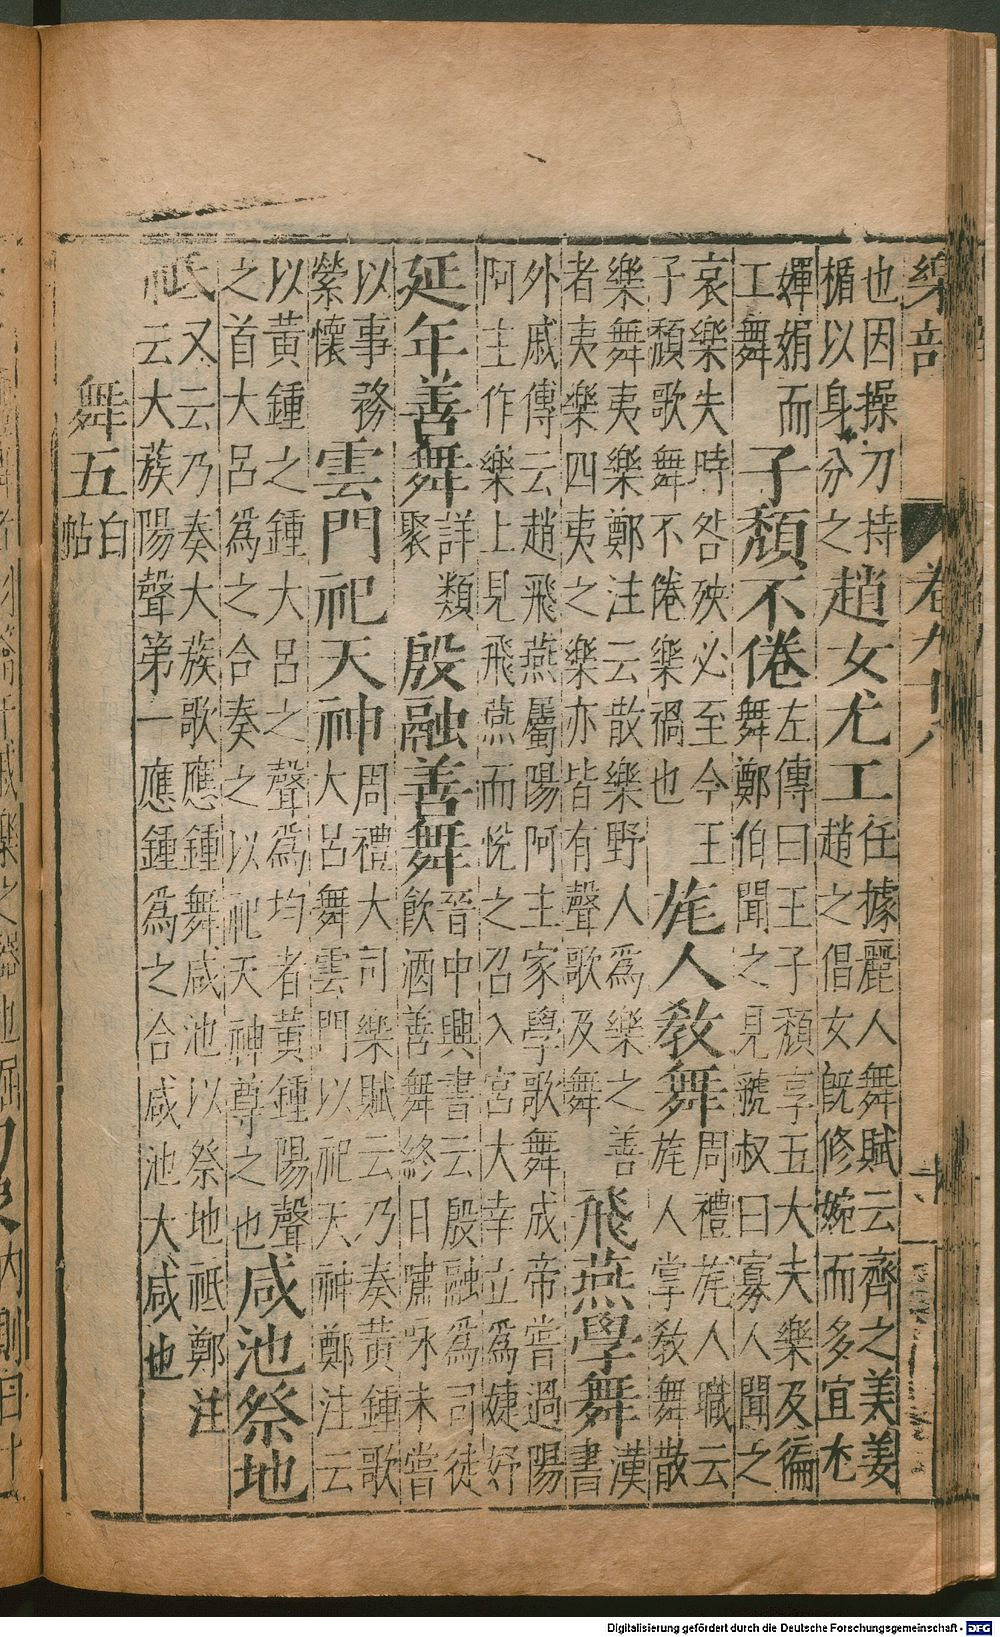 樂部 卷九十八 二
也因操刀持
楯以身分之
趙女尤工
任據麗人舞賦云齊之美姜
趙之倡女旣修婉而多宜尤
嬋娟而
工舞
子頽不倦
左傳曰王子頽享五大夫樂及徧
舞鄭伯聞之見虢叔曰寡人聞之
哀樂失時咎殃必至今王
子頽歌舞不倦樂禍也
旄人敎舞
周禮旄人職云
旄人掌敎舞散
樂舞夷樂鄭注云散樂野人爲樂之善
者夷樂四夷之樂亦皆有聲歌及舞
飛燕學舞
漢
書
外戚傳云趙飛燕屬陽阿主家學歌舞成帝嘗過陽
阿主作樂上見飛燕而悅之召入宮大幸立爲婕妤
延年善舞
詳類
聚
殷融善舞
晉中興書云殷融爲司徒
飲酒善舞終日嘯咏未嘗
以事務
縈懷
雲門祀天神
周禮大司樂賦云乃奏黃鍾歌
大呂舞雲門以祀天神鄭注云
以黃鍾之鍾大呂之聲爲均者黃鍾陽聲
之首大呂爲之合奏之以祀天神尊之也
咸池祭地
祇
又云乃奏大蔟歌應鍾舞咸池以祭地祇鄭注
云大蔟陽聲第一應鍾爲之合咸池大咸也
舞五
白
帖
Digitalisierung gefördert durch die Deutsche Forschungsgemeinschaft - DFG